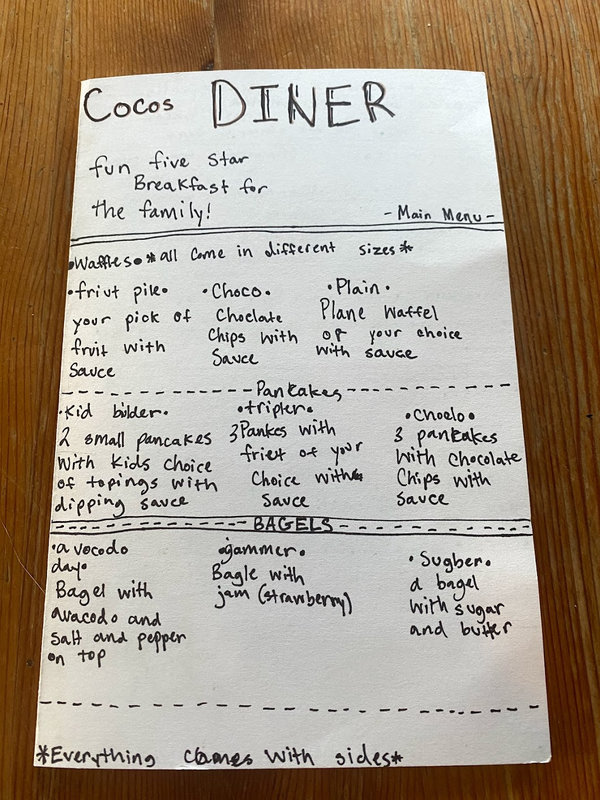 Cocos DINER
fun five star
Breakfast for
the family!
- Main Menu -
•Waffles• *all come in different sizes*
•friut pile•
your pick of
fruit with
Sauce
•Choco•
Choclate
Chips with
Sauce
•Plain•
Plane Waffel
of your choice
with sauce
Pankakes
•Kid bilder•
2 small pancakes
with kids choice
of topings with
dipping sauce
•tripler•
3 Pankes with
friet of your
Choice with
Sauce
•Choclo•
3 pankakes
with chocolate
Chips with
Sauce
BAGELS
•avocodo
day•
Bagel with
avacodo and
salt and pepper
on top
•jammer•
Bagle with
jam (strawberry)
•Sugber•
a bagel
with sugar
and butter
*Everything comes with sides*